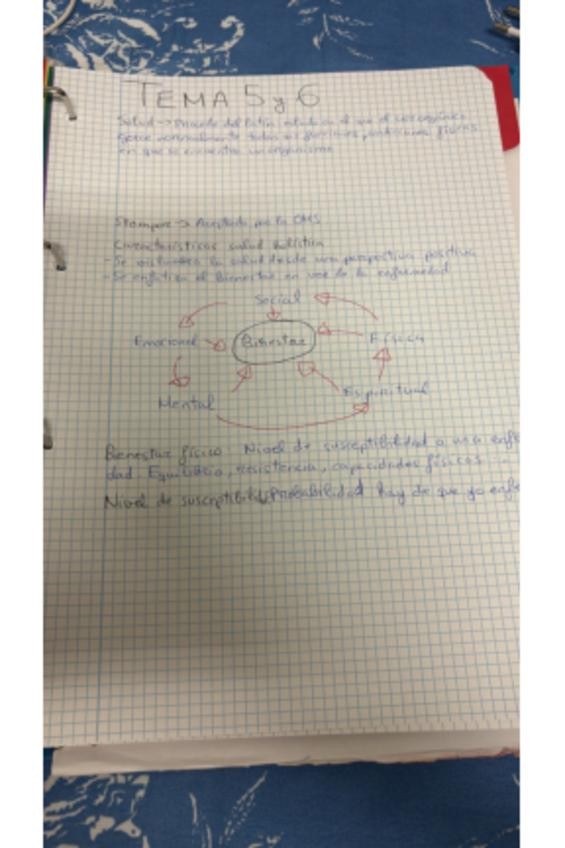 TEMA 5 y 6
Salud → Procede del latín, estado en el que el ser orgánico
ejerce normalmente todas las funciones, condiciones físicas
en que se encuentra un organismo
Stampar → Aceptada por la OMS
Características salud holística
- Se visualiza la salud desde una perspectiva positiva
- Se enfatiza el Bienestar en vez de la enfermedad
Social
Emocional
Bienestar
Físico
Espiritual
Mental
Bienestar físico: Nivel de susceptibilidad a una enfe
dad. Equilibrio, resistencia, capacidades físicas...
Nivel de susceptibili Probabilidad hay de que yo enfe